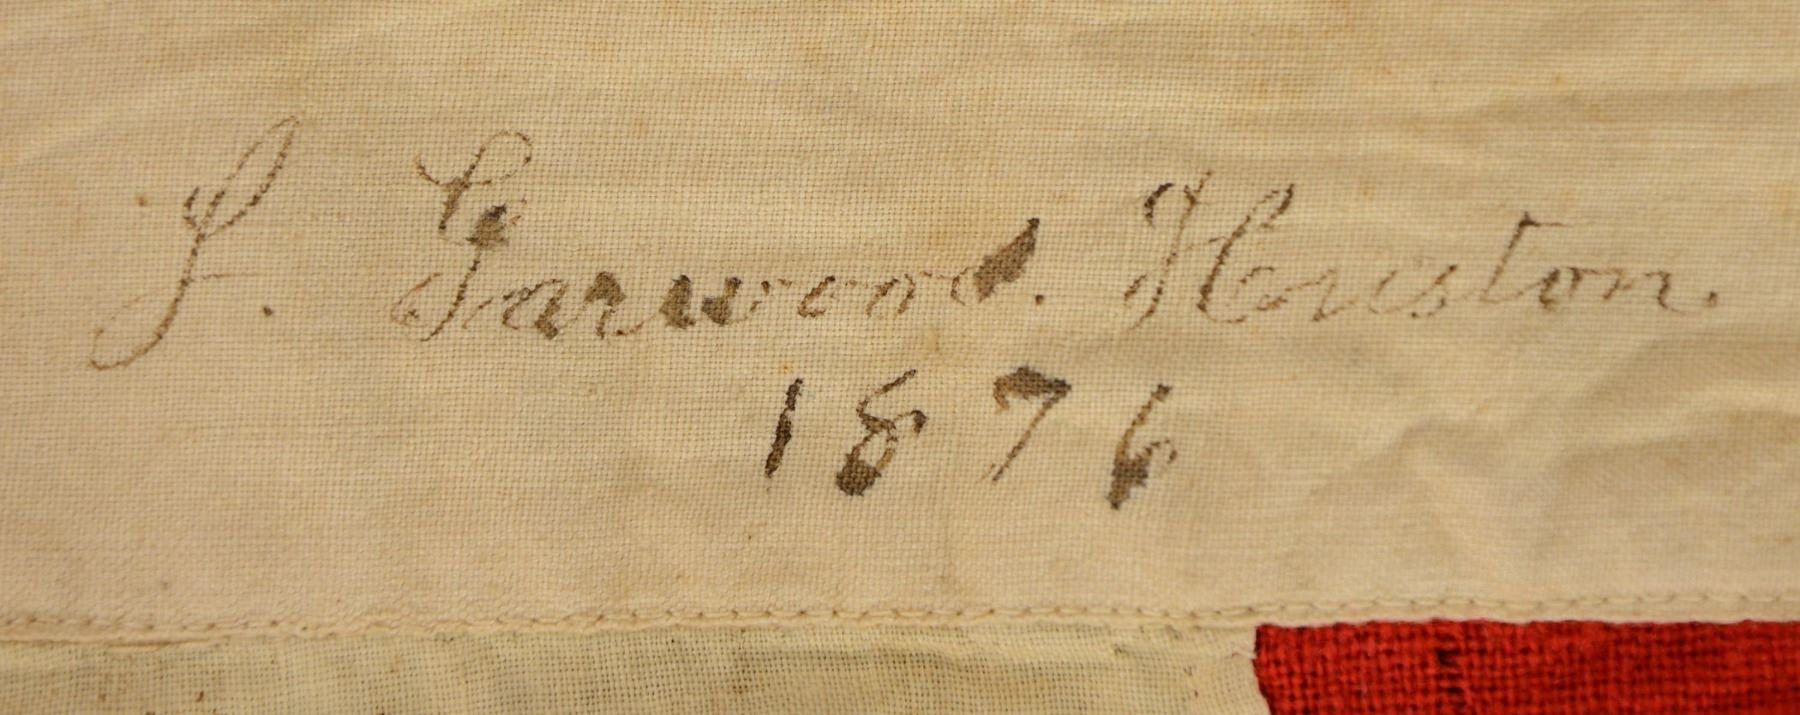 J. Garwood. Houston.
1876